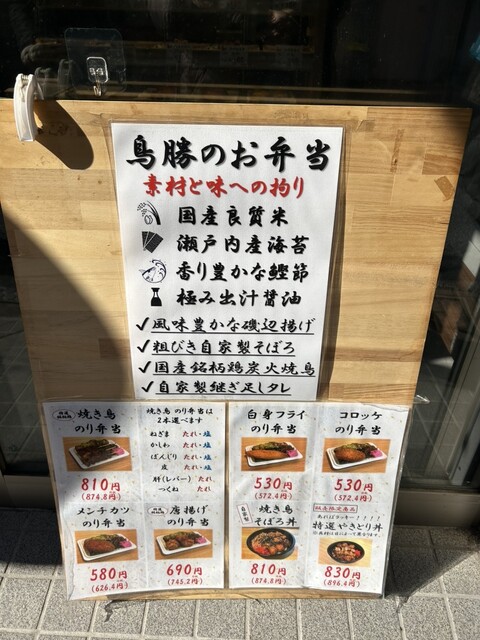 鳥勝のお弁当
素材と味への拘り
国産良質米
瀬戸内産海苔
香り豊かな鰹節
極み出汁醤油
✓風味豊かな磯辺揚げ
✓粗びき自家製そぼろ
✓国産銘柄鶏炭火焼鳥
✓自家製継ぎ足しタレ
焼き鳥
のり弁当
810円
(874.8円)
焼き鳥 のり弁当は
2本選べます
ねぎま たれ・塩
かしわ たれ・塩
ぼんじり たれ・塩
皮 たれ・塩
肝(レバー) たれ
つくね たれ
白身フライ
のり弁当
530円
(572.4円)
コロッケ
のり弁当
530円
(572.4円)
メンチカツ
のり弁当
580円
(626.4円)
唐揚げ
のり弁当
690円
(745.2円)
自家製
焼き鳥
そぼろ丼
810円
(874.8円)
数量限定商品
あればラッキー!!!!
特選やきとり丼
830円
(896.4円)